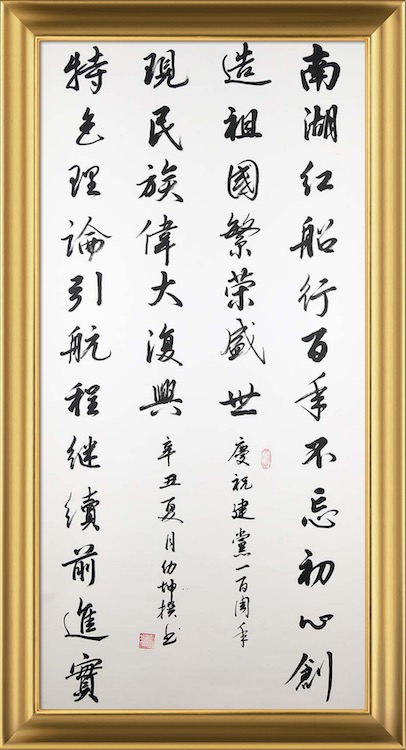 南湖红船行百年不忘初心創
造祖國繁荣盛世
慶祝建黨一百周年
特色理論引航程继續前進實
現民族偉大復興
辛丑夏月幼坤撰书